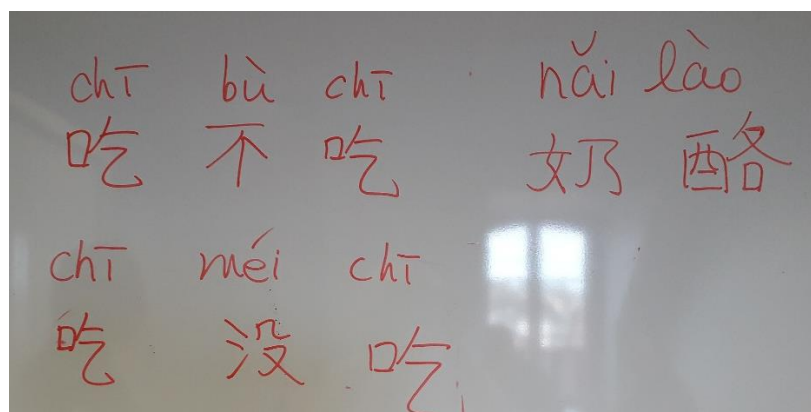 chī bù chī nǎi lào
吃 不 吃 奶 酪
chī méi chī
吃 没 吃